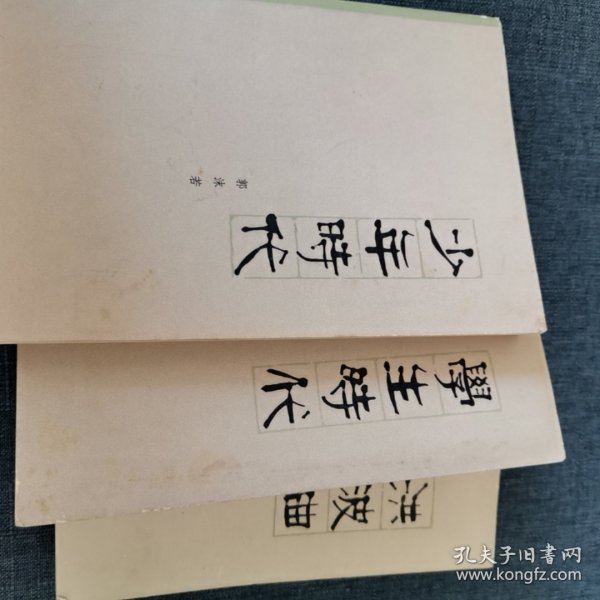 少年時代
郭沫若
學生時代
洪波曲
孔夫子旧书网
www.kongfz.com